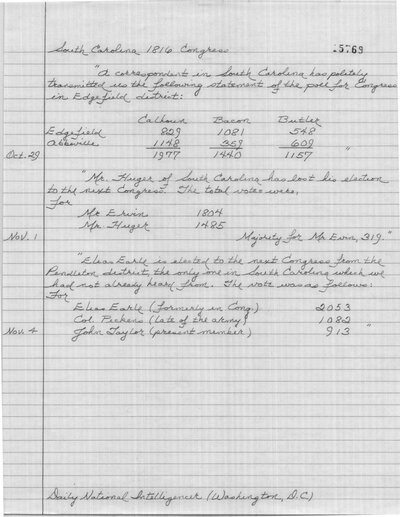 South Carolina 1816 Congress .5769
"A correspondent in South Carolina has politely
transmitted us the following statement of the poll for Congress
in Edgefield district:
Calhoun Bacon Butler
Edgefield 829 1081 548
Abbeville 1148 359 609
Oct. 29 1977 1440 1157 "
"Mr. Huger of South Carolina has lost his election
to the next Congress. The total votes were,
For
Mr Ervin 1804
Mr. Huger 1485
Nov. 1 Majority for Mr Ervin, 319."
"Elias Earle is elected to the next Congress from the
Pendleton district, the only one in South Carolina which we
had not already heard from. The vote was as follows:
For
Elias Earle (formerly in Cong.) 2053
Col. Pickens (late of the army) 1082
Nov. 4 John Taylor (present member) 913 "
Daily National Intelligencer (Washington, D.C)